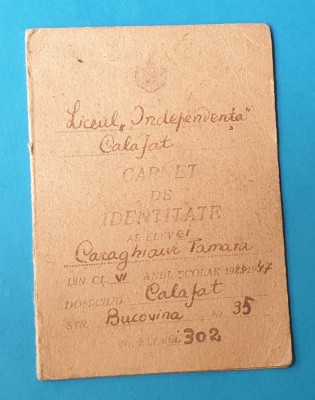 Liceul „Independența"
Calafat
CARNET
DE
IDENTITATE
AL ELEVEI
Caraghiaur Tamara
DIN CL. VI ANUL ȘCOLAR 1946-1947
DOMICILIUL Calafat
STR. Bucovina Nr. 35
Nr. ELEVEI 302